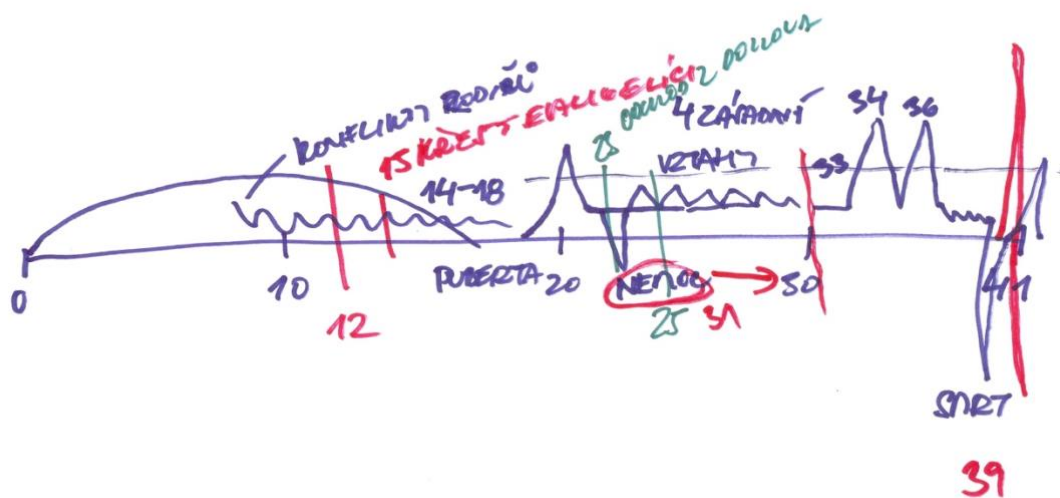 KONFLIKTY RODIČŮ
15 KŘEST EVANGELÍCI
ODCHOD Z DOMOVA
4 ZÁSADNÍ
VZTAHY
34 36
33
14-18
0
10
PUBERTA 20
NEMOC
30
41
12
25
31
SMRT
39